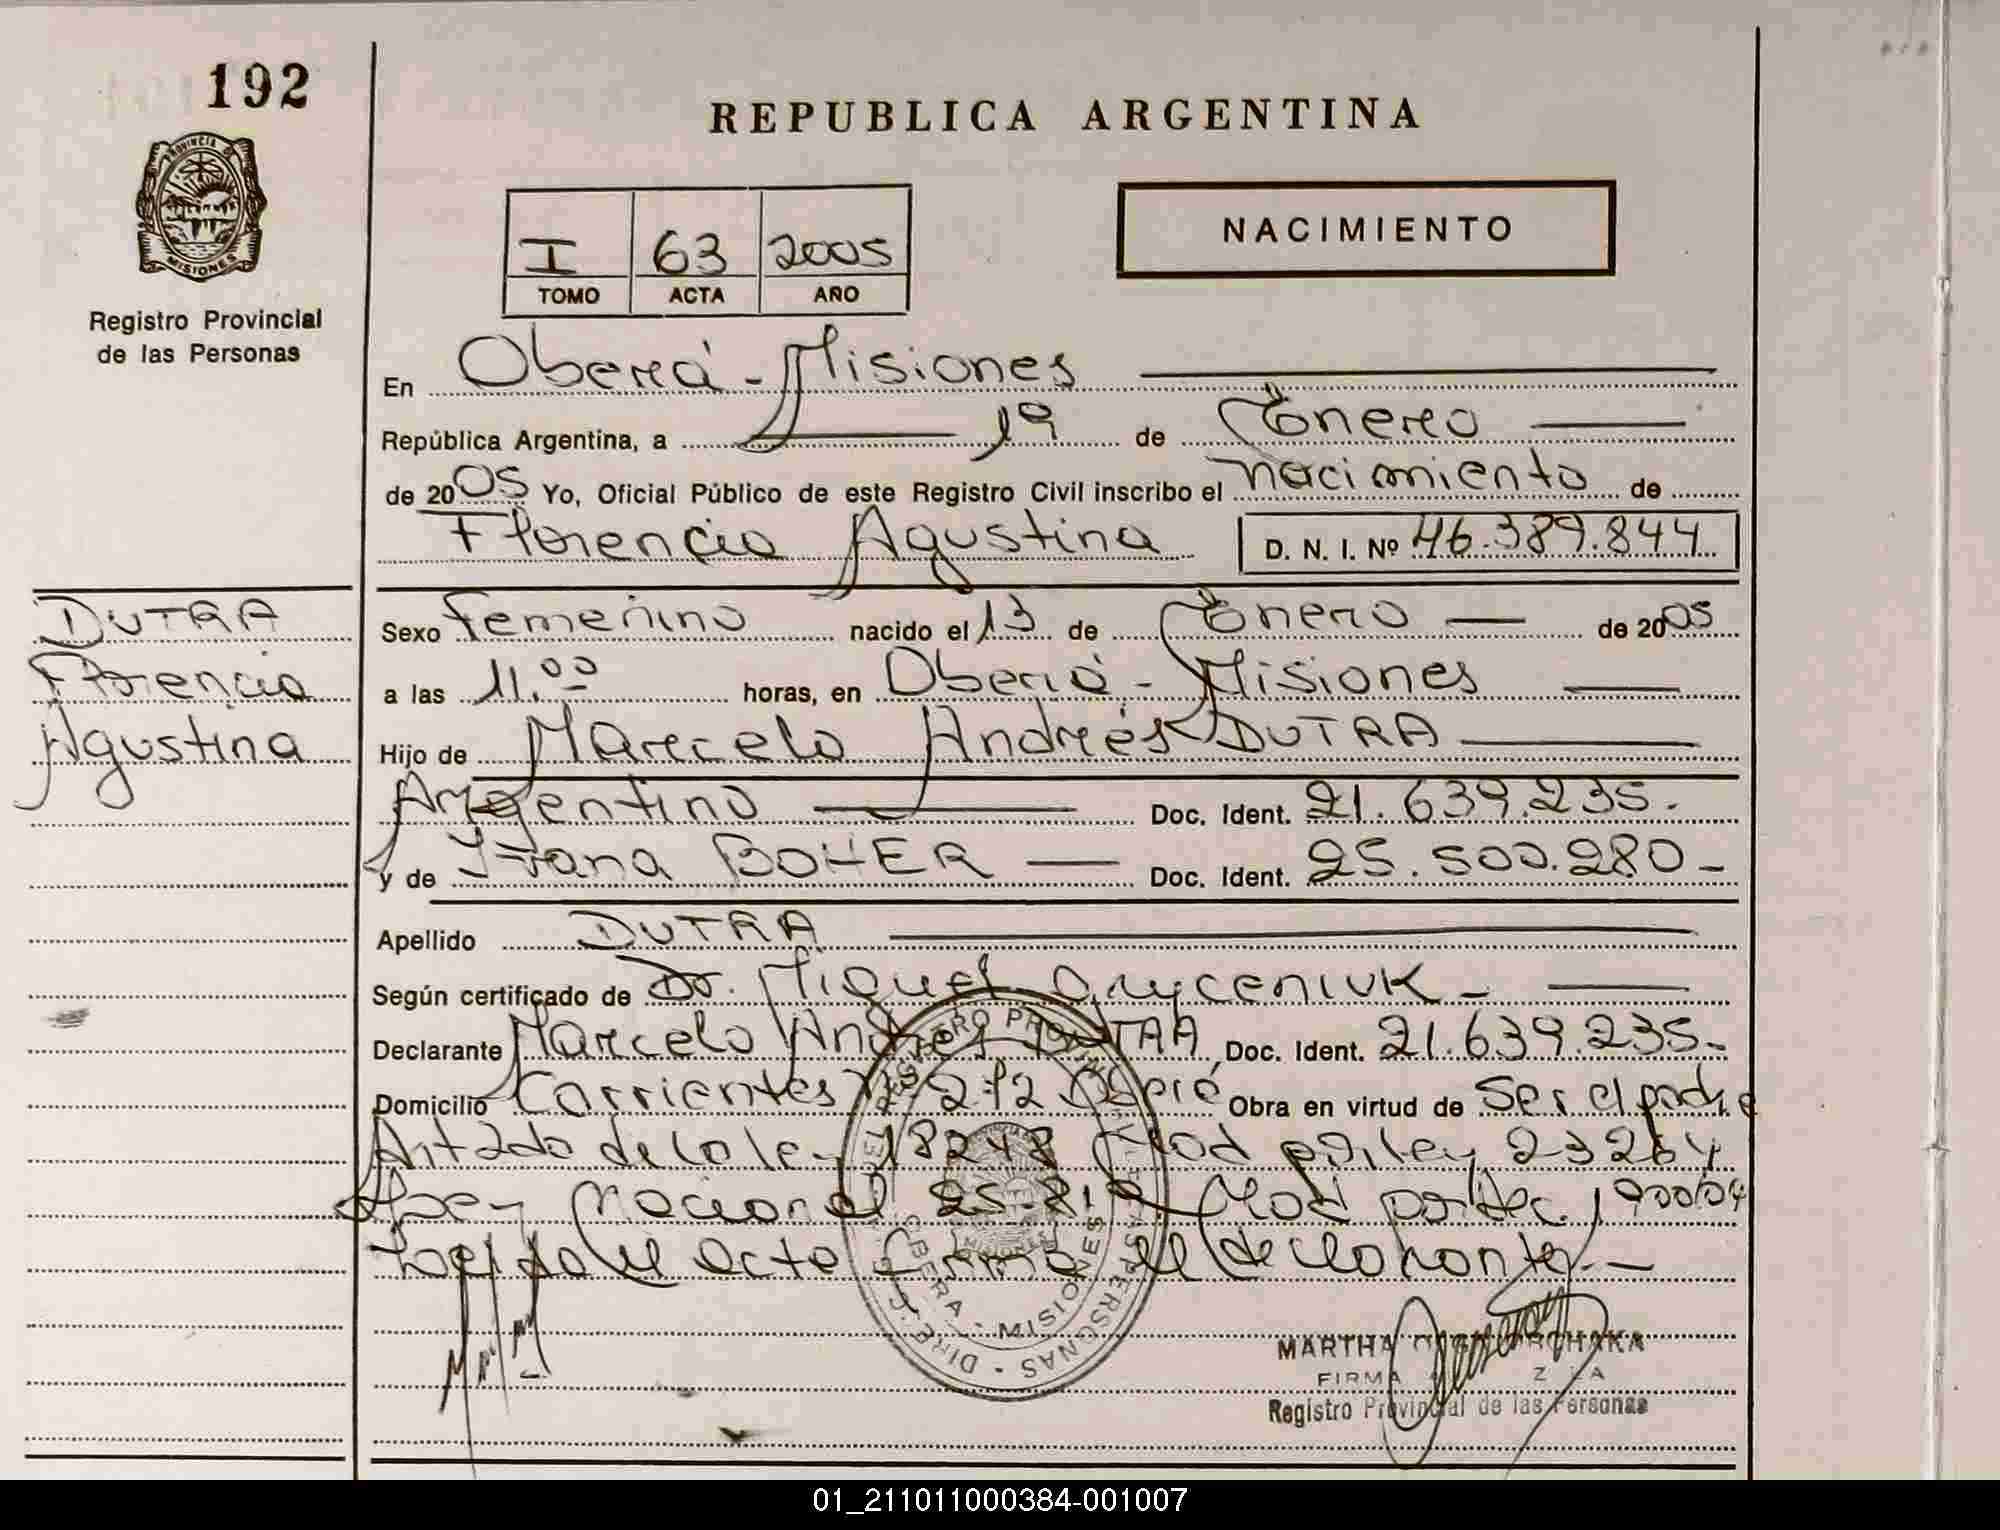 192
REPUBLICA ARGENTINA
PROVINCIA DE
MISIONES
Registro Provincial
de las Personas
NACIMIENTO
I 63 2005
TOMO ACTA AÑO
En Oberá - Misiones
República Argentina, a 19 de Enero
de 2005 Yo, Oficial Público de este Registro Civil inscribo el nacimiento de
Florencia Agustina D. N. I. Nº 46.389.844
DUTRA
Florencia
Agustina
Sexo Femenino nacido el 13 de Enero de 2005
a las 11.00 horas, en Oberá - Misiones
Hijo de Marcelo Andrés DUTRA
Argentino Doc. Ident. 21.639.235.
y de Ivana BOHER Doc. Ident. 25.500.280 -
Apellido DUTRA
Según certificado de Dr. Miguel -
Declarante Marcelo Andrés DUTRA Doc. Ident. 21.639.235-
Domicilio Corrientes Nº 272 Oberá Obra en virtud de ser el padre
de la ley 18248 Mod por ley 23264
Ley Nacional 25.819 Mod por Dec.
Leida el acta firma el declarante. -
REGISTRO PROVINCIAL DE LAS PERSONAS
OBERA - MISIONES
MARTHA
FIRMA
Registro Provincial de las Personas
01_211011000384-001007